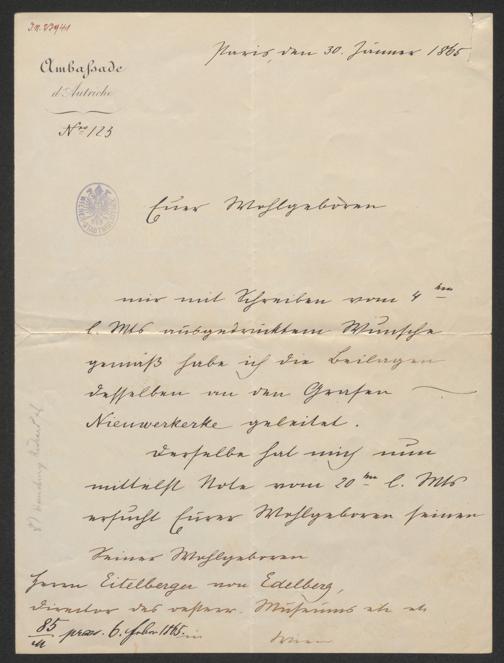 J.N. 23941
Paris, den 30. Jänner 1865
Ambassade
d'Autriche
Nro 125
Euer Wohlgeboren
mir mit Schreiben vom 4ten
l. Mts ausgedrücktem Wunsche
gemäß habe ich die Beilagen
desselben an den Grafen
Nieuwerkerke geleitet.
Derselbe hat mich nun
mittelst Note vom 20ten l. Mts
ersucht Eurer Wohlgeboren seinen
Seiner Wohlgeboren
Herrn Eitelberger von Edelberg,
Director des oesterr. Museums etc etc
in Wien
85 praes. 6. Feber 1865.